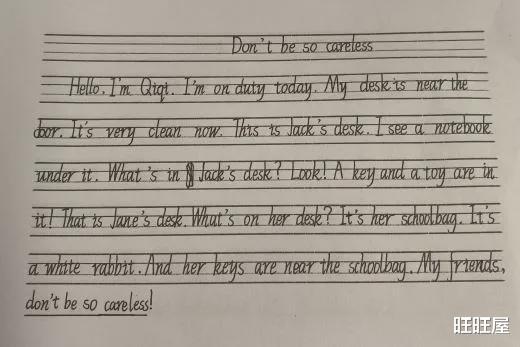 Don't be so careless
Hello. I'm Qiqi. I'm on duty today. My desk is near the
door. It's very clean now. This is Jack's desk. I see a notebook
under it. What's in Jack's desk? Look! A key and a toy are in
it! That is Jane's desk. What's on her desk? It's her schoolbag. It's
a white rabbit. And her keys are near the schoolbag. My friends,
don't be so careless!
旺旺屋